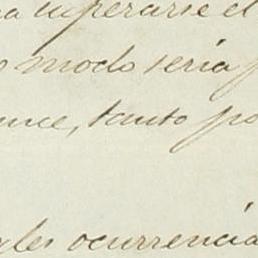 superarse el
modo seria
tanto po
ocurrencia